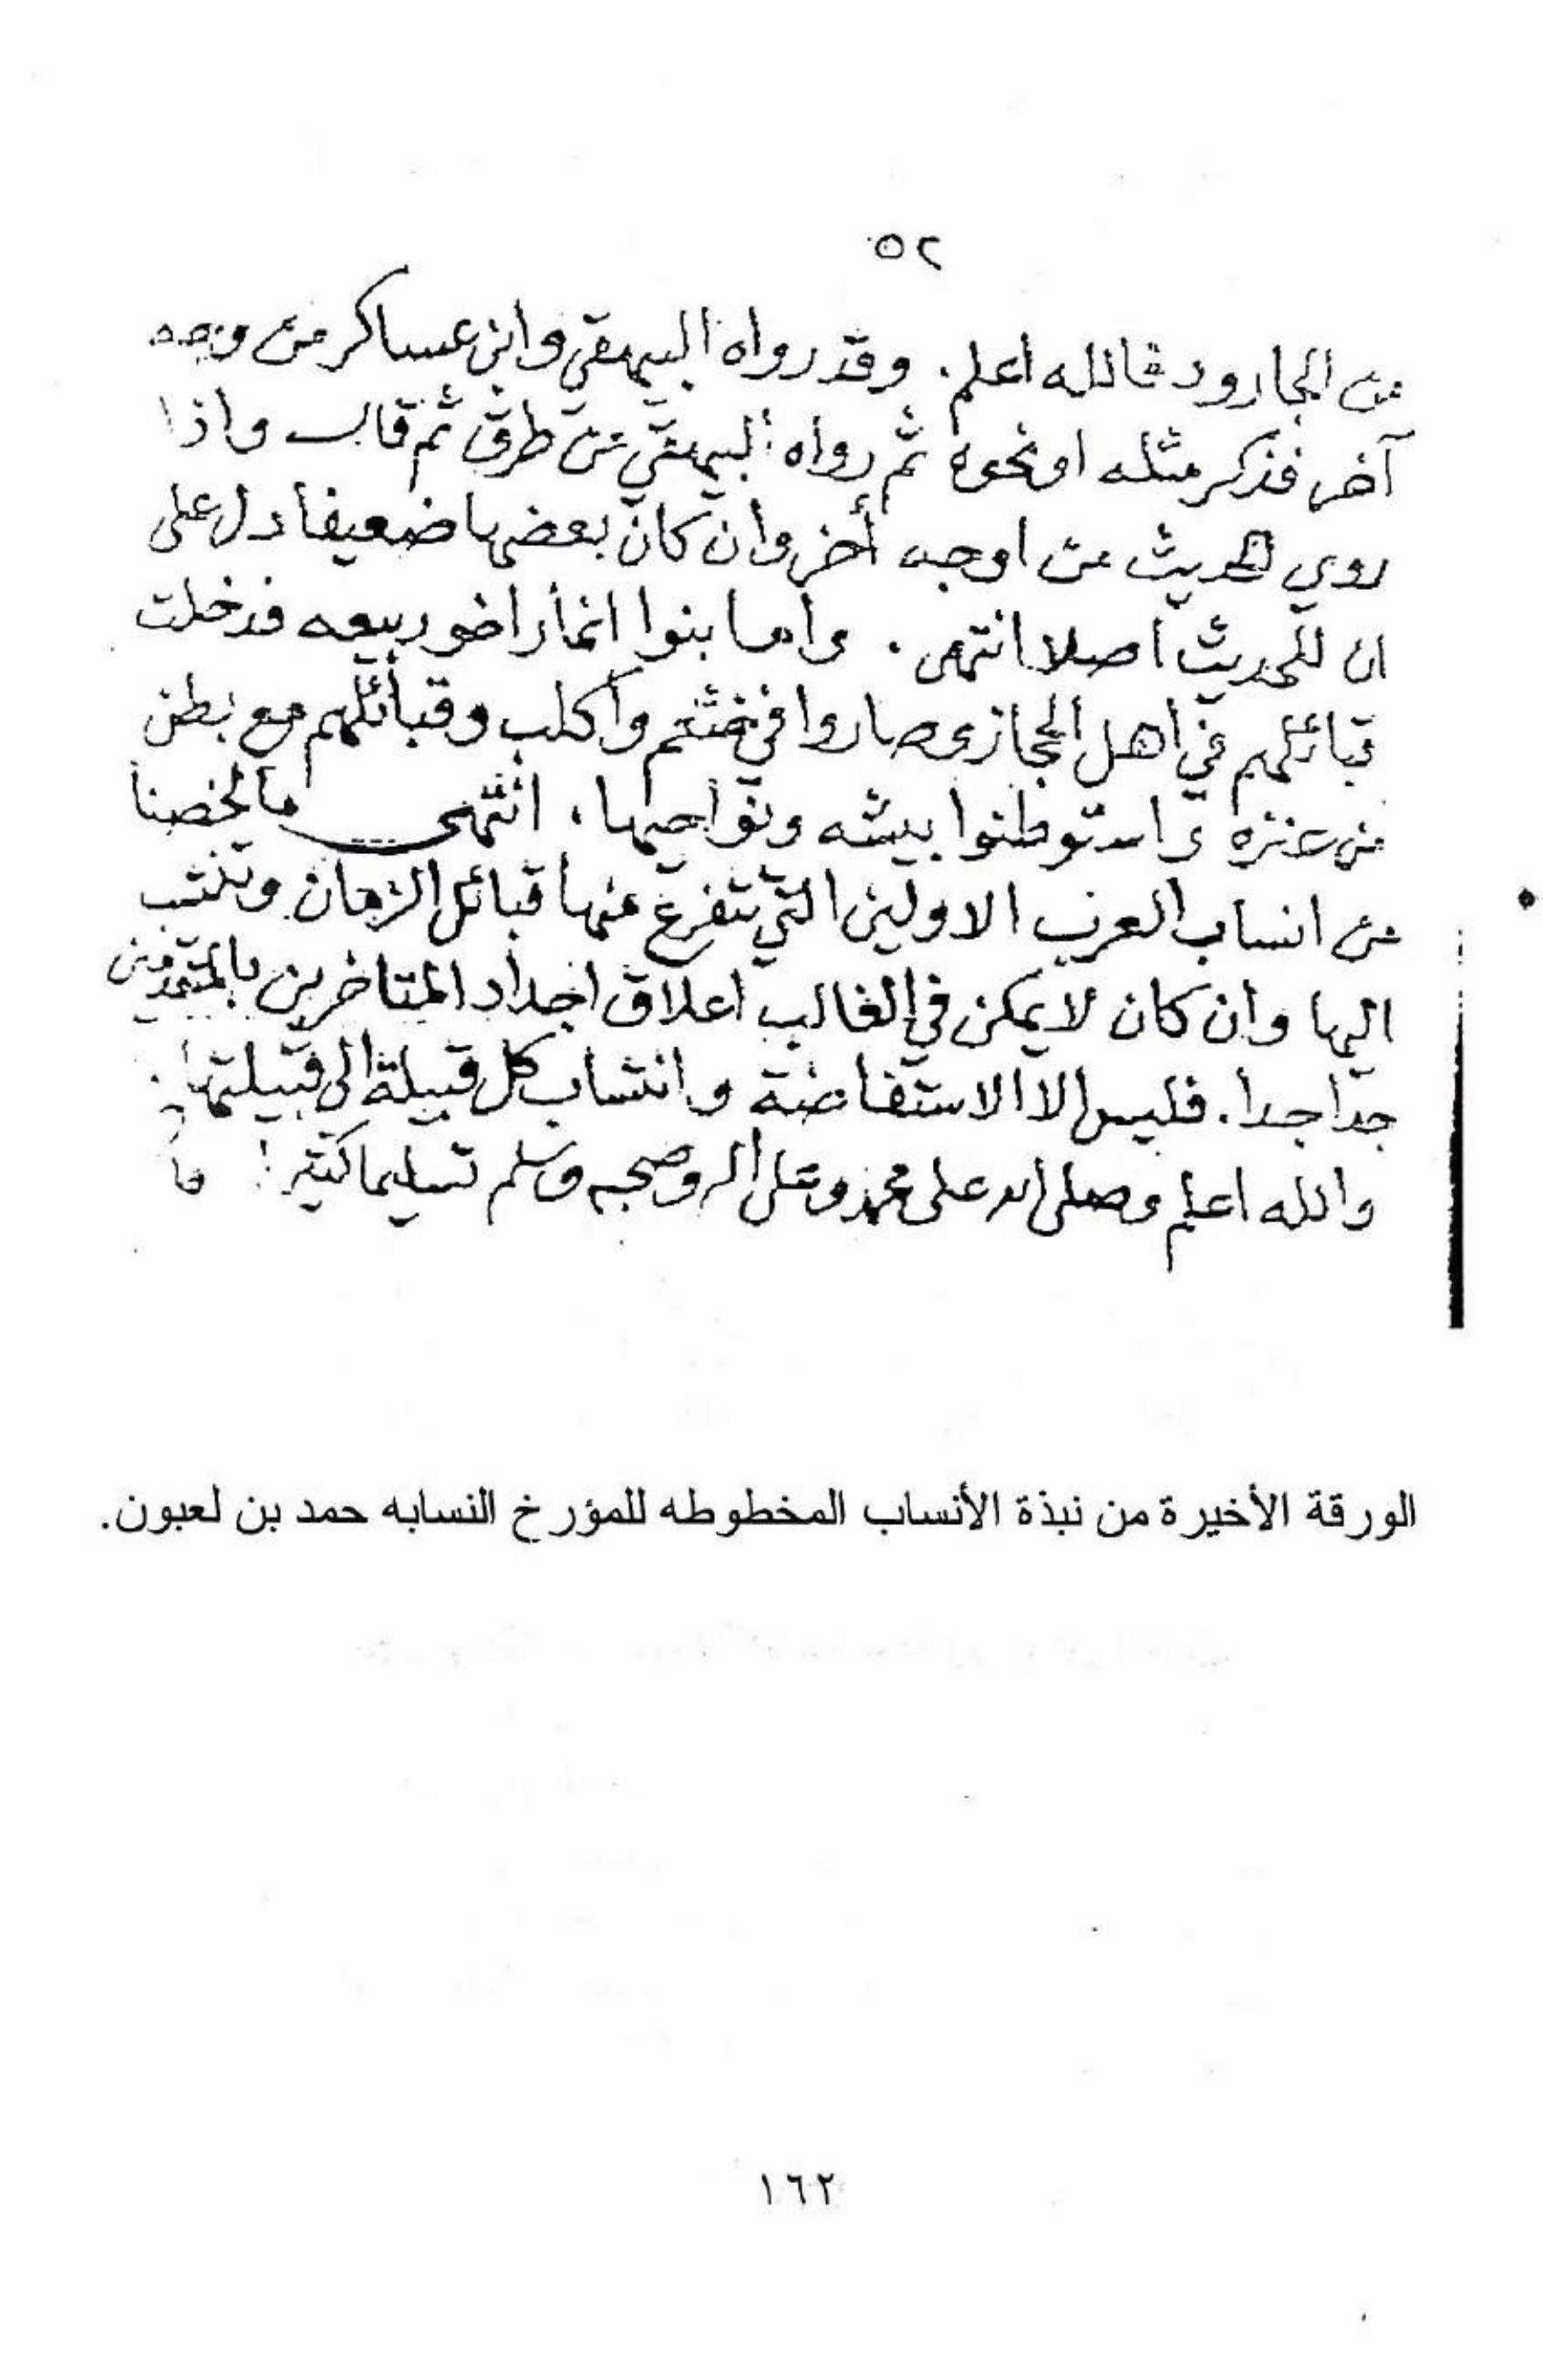 ٥٢
من الجارود فالله اعلم. وقد رواه البيهقي وابن عساكر من وجه
آخر فذكر مثله او نحوه ثم رواه البيهقي من طرق ثم قال واذا
روي الحديث من اوجه أخر وان كان بعضها ضعيفا دل على
ان للحديث اصلا انتهى. واما بنوا انمار اخو ربيعه فدخلت
قبائلهم في اهل الحجاز وصاروا في خثعم واكلب وقبائلهم مع بطن
من عنزه واستوطنوا بيشه ونواحيها. انتهى ما لخصنا
من انساب العرب الاولين التي تتفرع عنها قبائل الزمان وتنتسب
اليها وان كان لا يمكن في الغالب اعلاق اجداد المتاخرين بالمتقدمين
جدا جدا. فليس الا الاستفاضة وانتساب كل قبيلة الى قبيلتها
والله اعلم وصلى الله على محمد وعلى اله وصحبه وسلم تسليما كثيرا
الورقة الأخيرة من نبذة الأنساب المخطوطه للمؤرخ النسابه حمد بن لعبون.
١٦٢